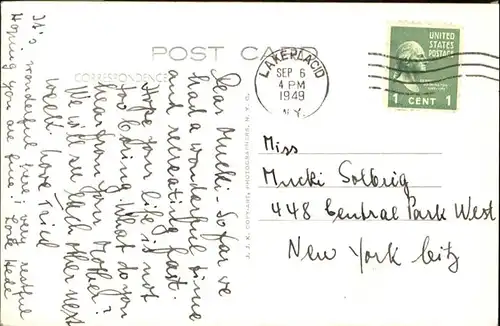 POST CARD
CORRESPONDENCE
LAKE PLACID
SEP 6
4 PM
1949
N.Y.
UNITED
STATES
POSTAGE
1 CENT 1
Dear Mucki - So far we
had a wonderful time
and recreating fast.
Hope your life is not
too boring. What do you
hear from your Mother?
We will see each other next
week. Love Trid
It's wonderful here; very restful
Hoping you are fine. Love Hede
Miss
Mucki Solbrig
448 Central Park West
New York City